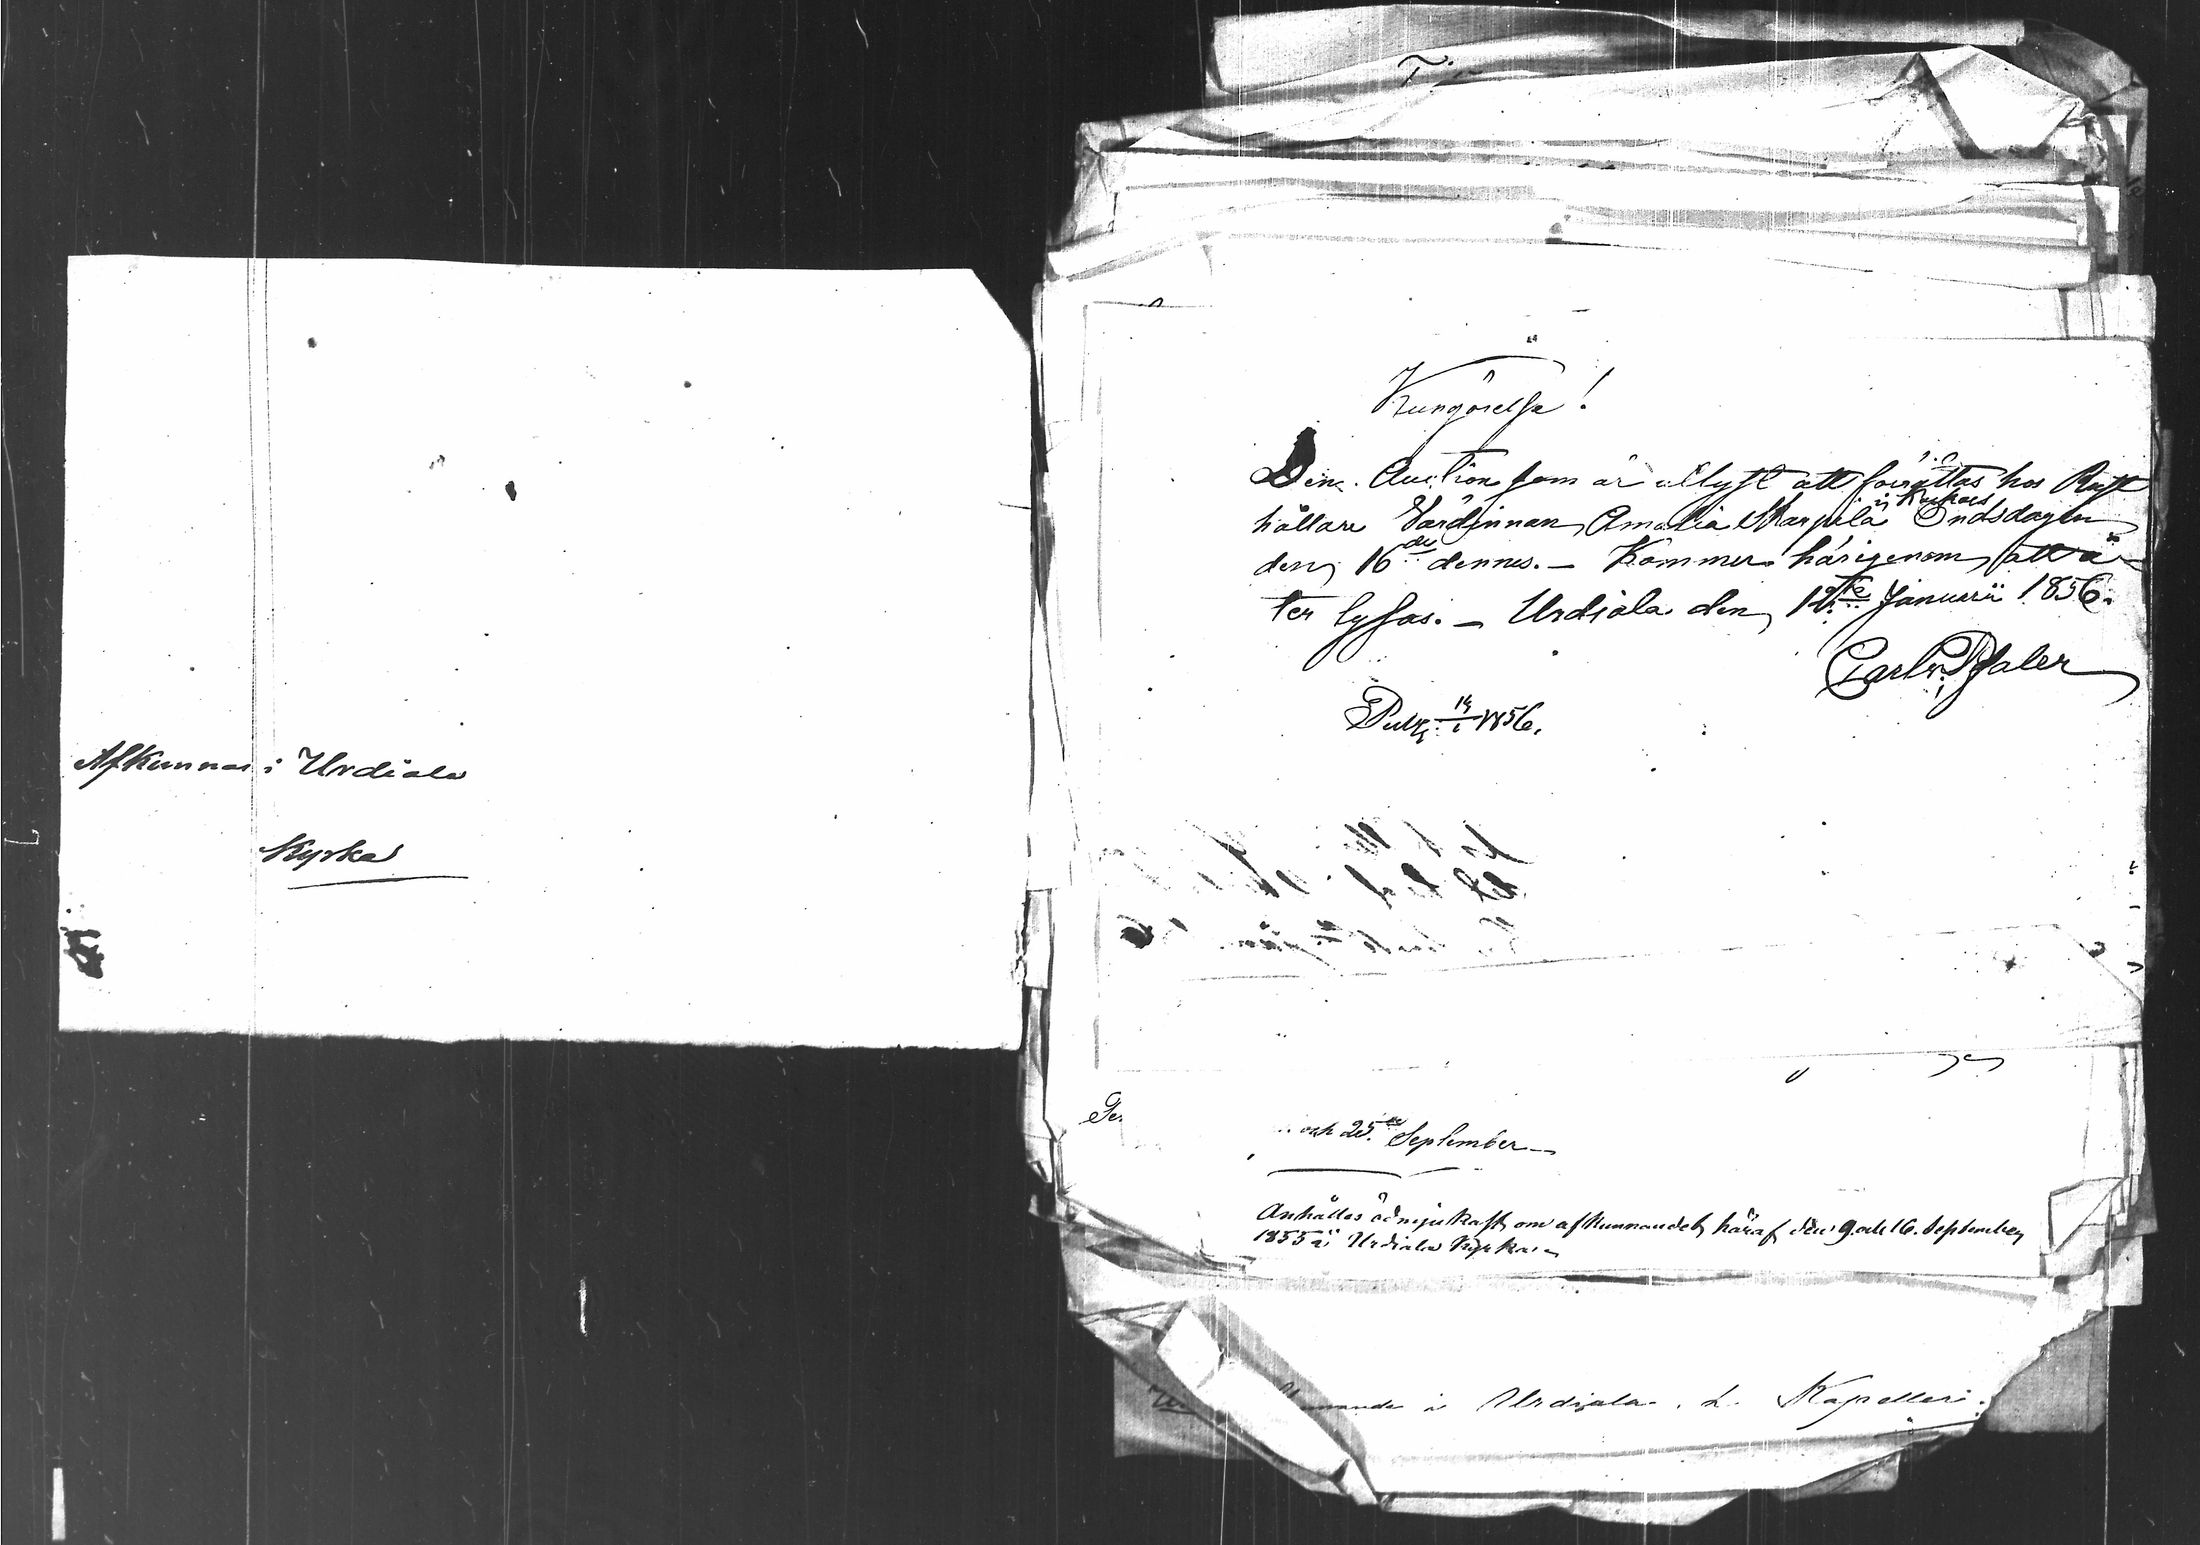 Afkunnas i Urdiala
Kyrka
Kungörelse!
Den Auction som är utlyst att förrättas hos Rust
hållare Värdinnan Amalia Skarpilä i Kuhois Ondsdagen
den 16de dennes. — Kommer härigenom att å
ter lysas. — Urdiala den 12te Januarii 1856.
Carl
Publ. 13/1 1856.
och 25de September
Anhålles ödmjukast om afkunnandet häraf den 9 och 16. September
1855 i Urdiala Kyrka
i Urdiala Kapelleri